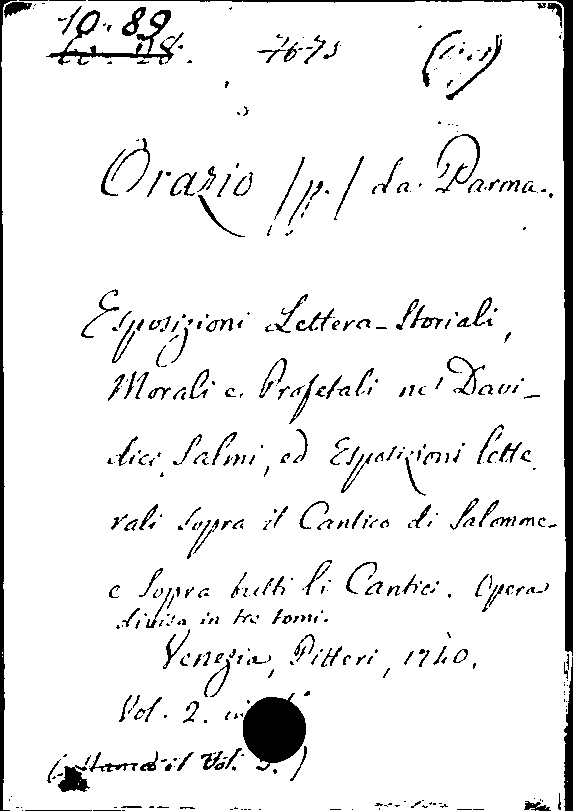 10. 89
7673
Orazio /p./ da Parma.
Esposizioni Lettera-Storiali,
Morali e Profetali ne' Davi-
dici Salmi, ed Esposizioni lette
rali sopra il Cantico di Salomone
e sopra tutti li Cantici. Opera
divisa in tre tomi.
Venezia, Pitteri, 1740.
Vol. 2. in
(Manca il Vol. 3.)